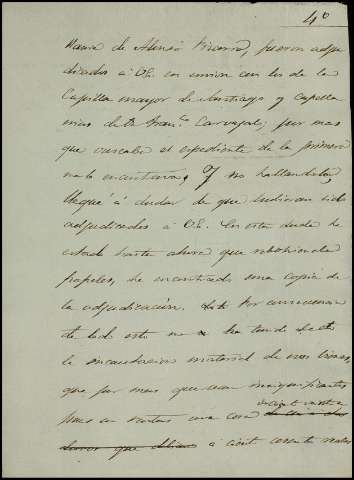 4º
de Alonso fueron adju
dicados á Vd. en union con los de la
Capilla mayor de Santiago y Capella
nias de Dª Franca Carvajal; por mas
que buscaba el espediente de la primera
no lo encontraba, Y no hallandolo,
llegué á dudar de que hubieran sido
adjudicados á Vd. En esta duda he
estado hasta ahora que revolviendo
papeles, he encontrado una copia de
la adjudicación.
de todo esto no ha
la incautacion material de esos bienes,
que por mas que sean insignificantes
pues en rentas una cosa
á ciento cuarenta reales